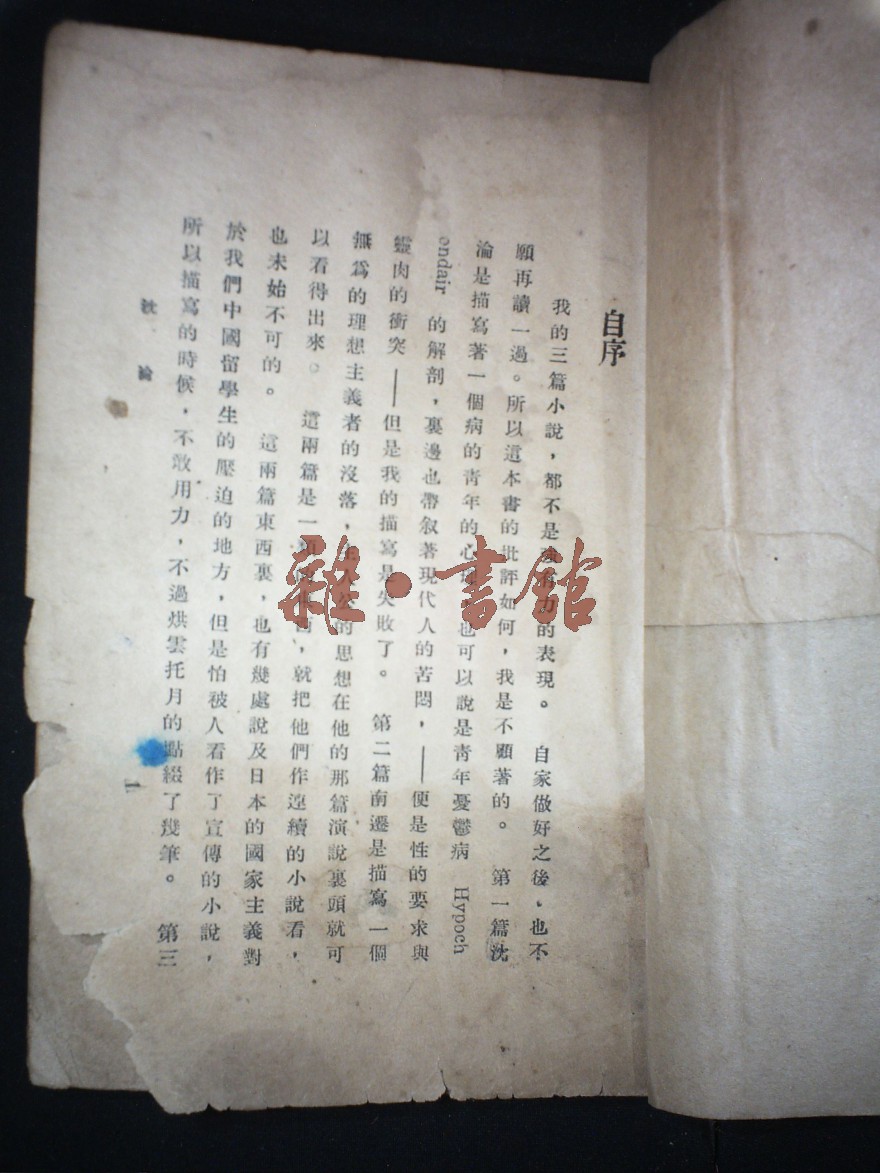 自序
我的三篇小說，都不是強有力的表現。 自家做好之後，也不
願再讀一過。所以這本書的批評如何，我是不顧著的。 第一篇沈
淪是描寫著一個病的青年的心理，也可以說是青年憂鬱病 Hypoch
ondair 的解剖，裏邊也帶叙著現代人的苦悶，——便是性的要求與
靈肉的衝突——但是我的描寫是失敗了。 第二篇南遷是描寫一個
無爲的理想主義者的沒落，主人公的思想在他的那篇演說裏頭就可
以看得出來。 這兩篇是一類的東西，就把他們作連續的小說看，
也未始不可的。 這兩篇東西裏，也有幾處說及日本的國家主義對
於我們中國留學生的壓迫的地方，但是怕被人看作了宣傳的小說，
所以描寫的時候，不敢用力，不過烘雲托月的點綴了幾筆。 第三
沈淪
雜·書館